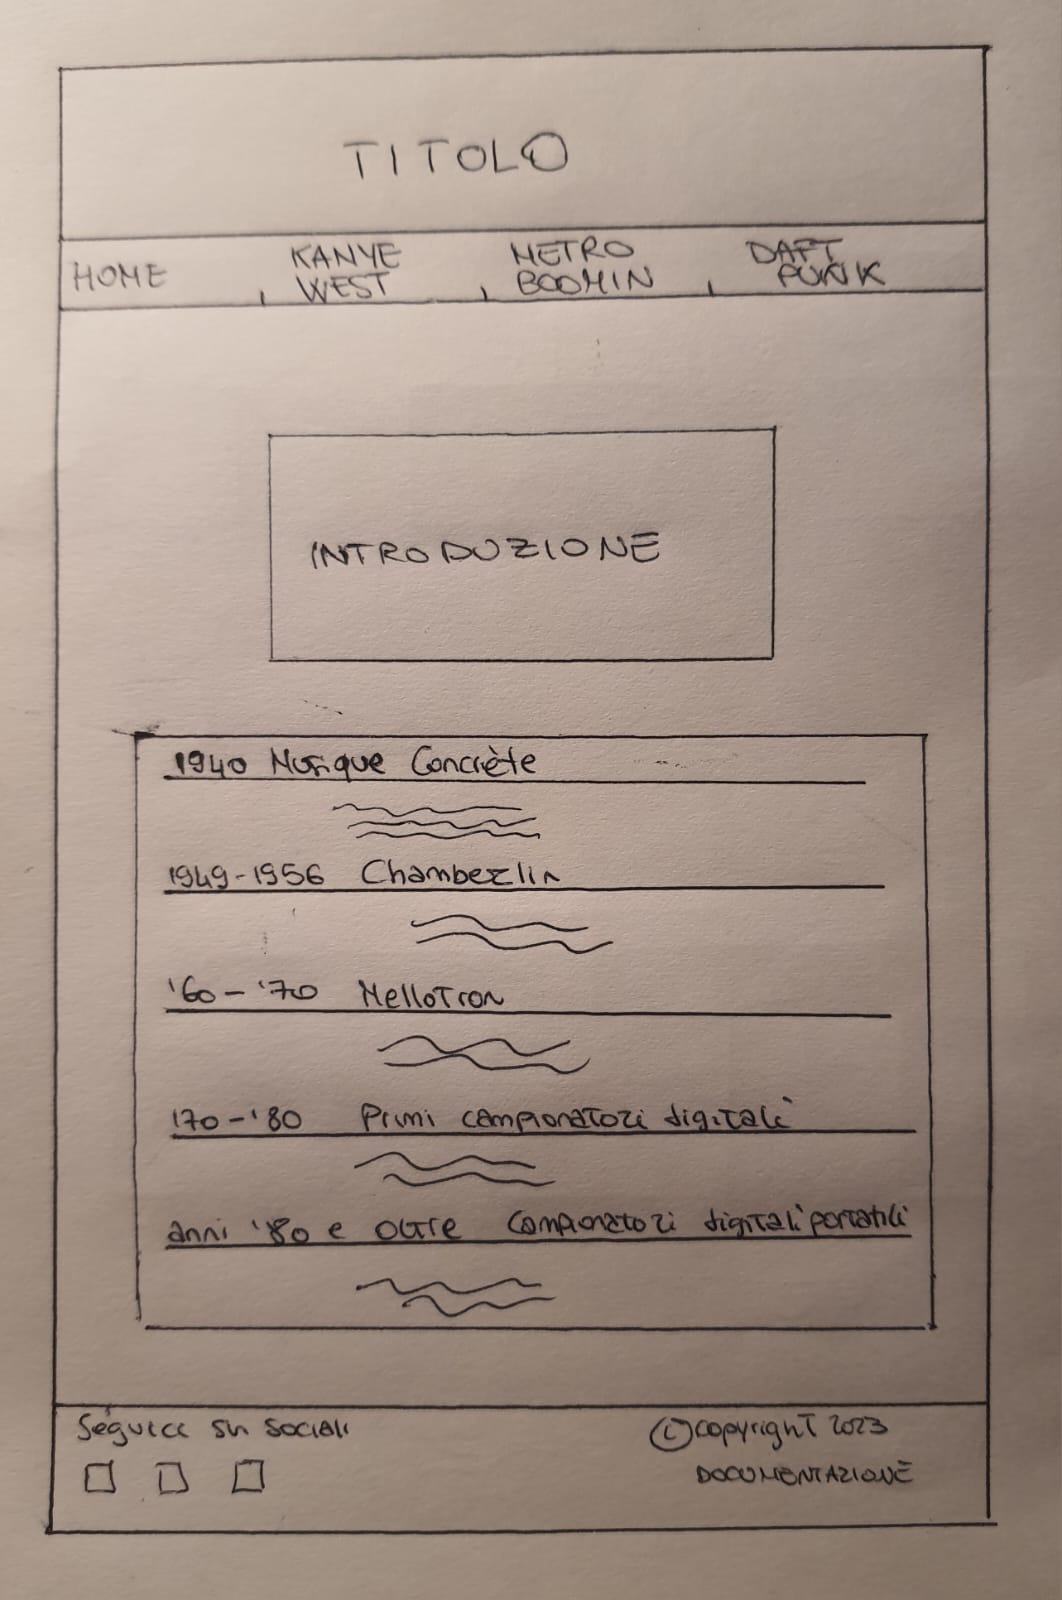 TITOLO
HOME
KANYE
WEST
METRO
BOOMIN
DAFT
PUNK
INTRODUZIONE
1940 Musique Concrète
1949-1956 Chamberlin
'60-'70 Mellotron
'70-'80 Primi campionatori digitali
anni '80 e oltre Campionatori digitali portatili
Seguici su social
©copyright 2023
DOCUMENTAZIONE